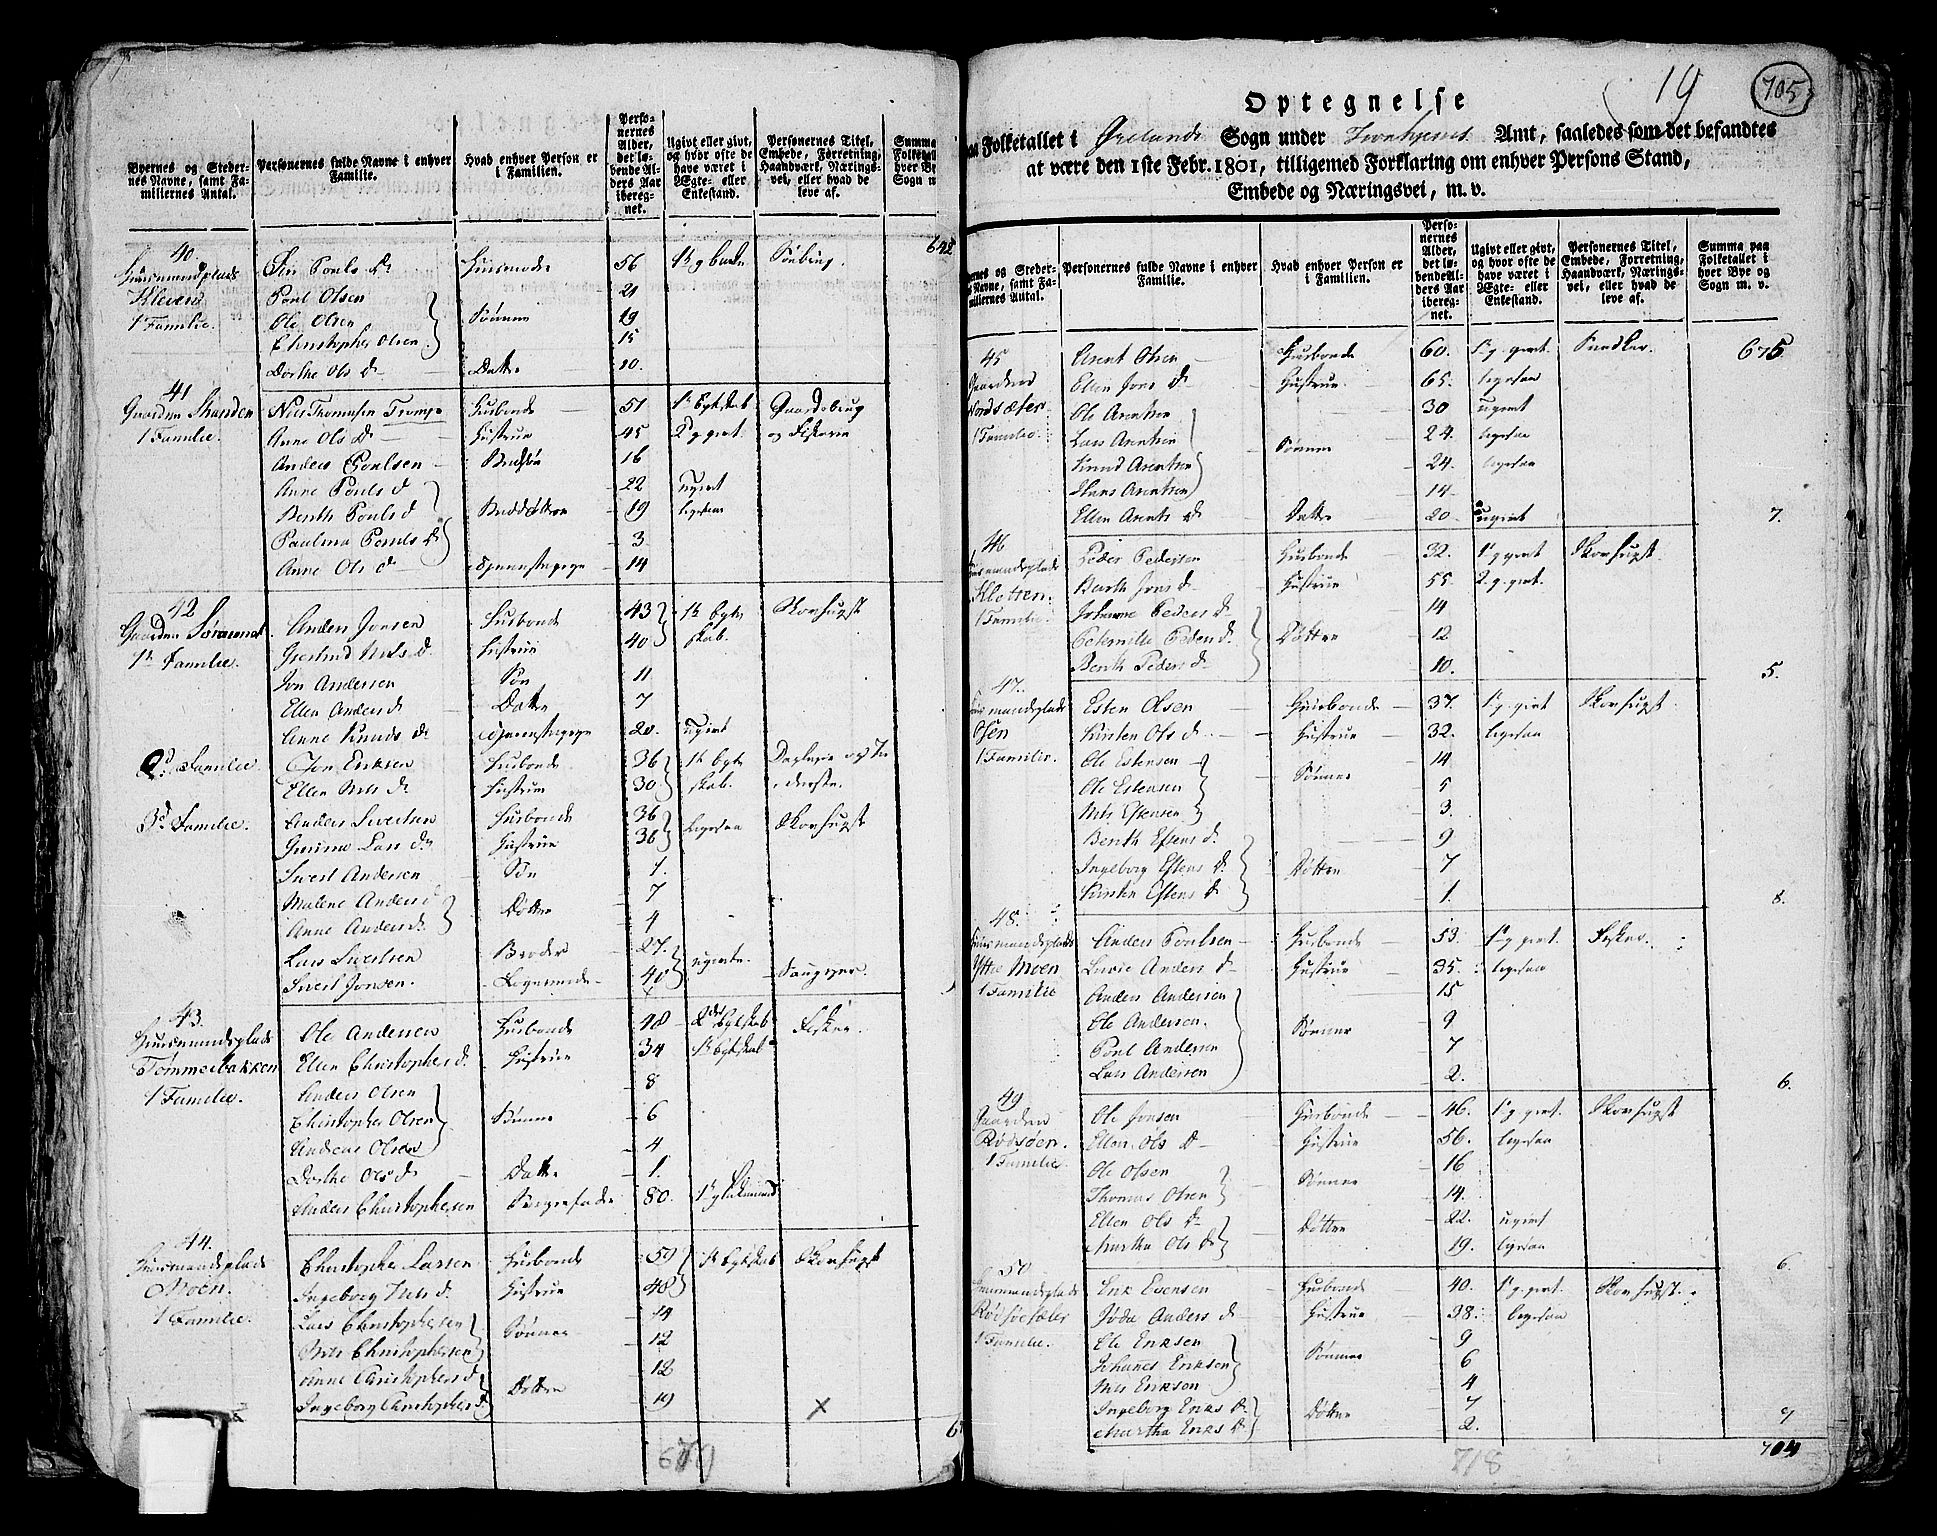 Byernes og Steder-
nes Navne, samt Fa-
miliernes Antal.
Personernes fulde Navne i enhver
Familie.
Hvad enhver Person er
i Familien.
Perso-
nernes
Alder,
det lø-
bende Al-
ders Aar
ibereg-
net.
Ugivt eller givt,
og hvor ofte de
have været i
Ægte- eller
Enkestand.
Personernes Titel,
Embede, Forretning,
Haandværk, Nærings-
vei, eller hvad de
leve af.
Summa
Folketal
hver By
Sogn m
642
40
Huusmandsplads
Kleiven
1 Familie.
Poul Olsen 21
Ole Olsen Sønner 19
Christopher Olsen 15
Dorthe Ols D Datter 10.
41
Gaarden Stranden
1 Familie.
Nils Thomasen Trompe Husbonde 51 Gaardsbrug
Anne Ols D Hustrue 45 2 g givt og Fiskerie
Anders Poulsen 16
Anne Pouls d 22 ugivt
Benth Pouls d 19 ligesaa
Paulina Pouls D 3
Anne Ols d Tjenestepige 14
42
1te Familie.
Anders Jonsen Husbonde 43 1te Egte-
Gierlrud Nils D. Hustrue 40 skab.
Jon Andersen Søn 11
Ellen Anders d Datter 7
Anne Knuds D Tjenestepige 20. ugivt
2d Familie.
Jon Eriksen Husbonde 36 1te Egte
Ellen Nils d Hustrue 30 skab.
3d Familie.
Anders Sivertsen Husbonde 36 ligesaa
Hustrue 36
Sivert Andersen Søn 1.
Malene Anders d 7
Døttre
Anne Anders d. 4
Lars Sivertsen Broder 27. ugivte
Sivert Jonsen. Logerende 40
43.
Huusmandsplads
Tømmerbakken
1 Familie.
Ole Andersen Husbonde 48 2det Egtskab Fisker
Ellen Christophers d. Hustrue 34 1te Egtskab
Anders Olsen 8
Christopher Olsen Sønner 6
Andreas Olsen 4
Dorthe Ols d Datter 1.
Anders Christophersen 80.
44.
Huusmandsplads
Moen.
1 Familie.
Christopher Larsen Husbonde 59 1te Egtskab
Ingeborg Nils d. Hustrue 48
Lars Christophersen 14
Sønner
Nils Christophersen 12
Anne Christophers d 12
Døttre
Ingeborg Christophers d 19
X
679
19
705
Optegnelse
Folketallet i Ørelands Sogn under Tronhjems Amt, saaledes som det befandtes
at være den 1ste Febr. 1801, tilligemed Forklaring om enhver Persons Stand,
Embede og Næringsvei, m. v.
ernes og Steder-
nes Navne, samt Fa-
miliernes Antal.
Personernes fulde Navne i enhver
Familie.
Hvad enhver Person er
i Familien.
Perso-
nernes
Alder,
det lø-
bende Al-
ders Aar
ibereg-
net.
Ugivt eller givt,
og hvor ofte de
have været i
Ægte- eller
Enkestand.
Personernes Titel,
Embede, Forretning,
Haandværk, Nærings-
vei, eller hvad de
leve af.
Summa paa
Folketallet i
hver Bye og
Sogn m. v.
675
45
Gaarden
Nordsæter
1 Familie.
Arent Olsen Husbonde 60. 1 g. givt. Snedker.
Ellen Jons D Hustrue 65. ligesaa
Ole Arentsen 30 ugivt
Lars Arentsen 24. ligesaa
Sønner
Knud Arentsen 24. ligesaa
Hans Arentsen 14
Ellen Arents D Datter 20 ugivt 7.
46
Huusmandsplads
Klotten.
1 Familie.
Peder Pedersen Husbonde 32. 1 g givt
Berth Jons d Hustrue 55 2. g. givt.
Johanne Peders d 14
Peternille Peders d. Døttre 12
Benth Peders d 10. 5.
47.
Huusmandsplads
Osen
1 Familie.
Esten Olsen Husbonde 37. 1 g. givt
Kirsten Ols d. Hustrue 32. ligesaa
Ole Estensen 14
Ole Estensen Sønner 5
Nils Estensen 3.
Benth Estens d. 9
Ingeborg Estens d. Døttre 7
Kirsten Estens d 1. 8.
48.
Huusmandsplads
Ytter Moen
1 Familie
Anders Poulsen Husbonde 53. 1 g givt. Fisker.
Lucie Anders d Hustrue 35. ligesaa
Anders Andersen 15
Ole Andersen. 9
Sønner
Poul Andersen 7
Lars Andersen 2. 6.
49
Gaarden
Rødsøen.
1 Familie.
Ole Jonsen Husbonde 46. 1 g givt.
Ellen Ols D Hustrue 56. ligesaa
Ole Olsen 16
Sønner
Thomas Olsen 14.
Ellen Ols D 22. ugivt
Døttre
Martha Ols D 19. ligesaa 6.
50
Huusmandsplads
1 Familie.
Erik Evensen Husbonde 40. 1 g. givt.
Anders d Hustrue 38. ligesaa
Ole Eriksen 9
Johanes Eriksen Sønner 6
Nils Eriksen 4
Ingeborg Eriks d 7
Døttre
Martha Eriks d. 2. 7
704
718